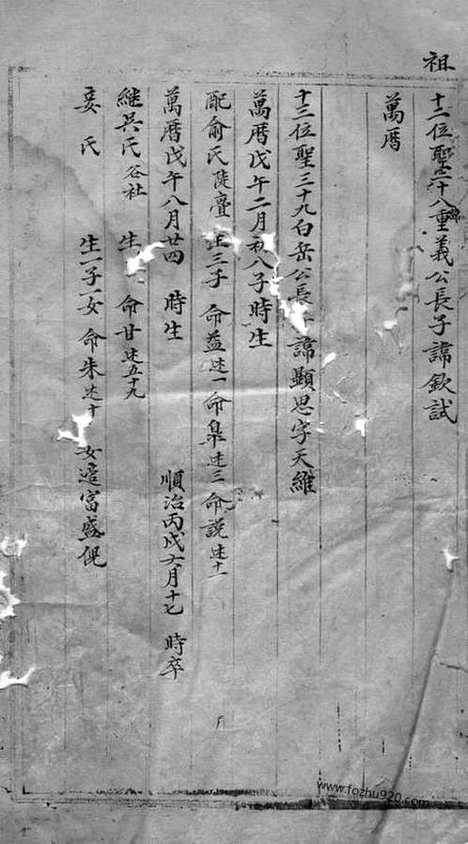 祖
十二位聖三十八重義公長子諱欽試
萬曆
十三位聖三十九白岳公長 諱顯思字天維
萬曆戊午二月初八子時生
配俞氏陡亹 生三子 命益述一命皋述三命說述十一
萬曆戊午八月廿四 時生 順治丙戌六月十七 時卒
繼吳氏谷社 生 命甘述五十九
妾氏 生一子一女 命朱述十 女適富盛倪
www.fozhu920.com